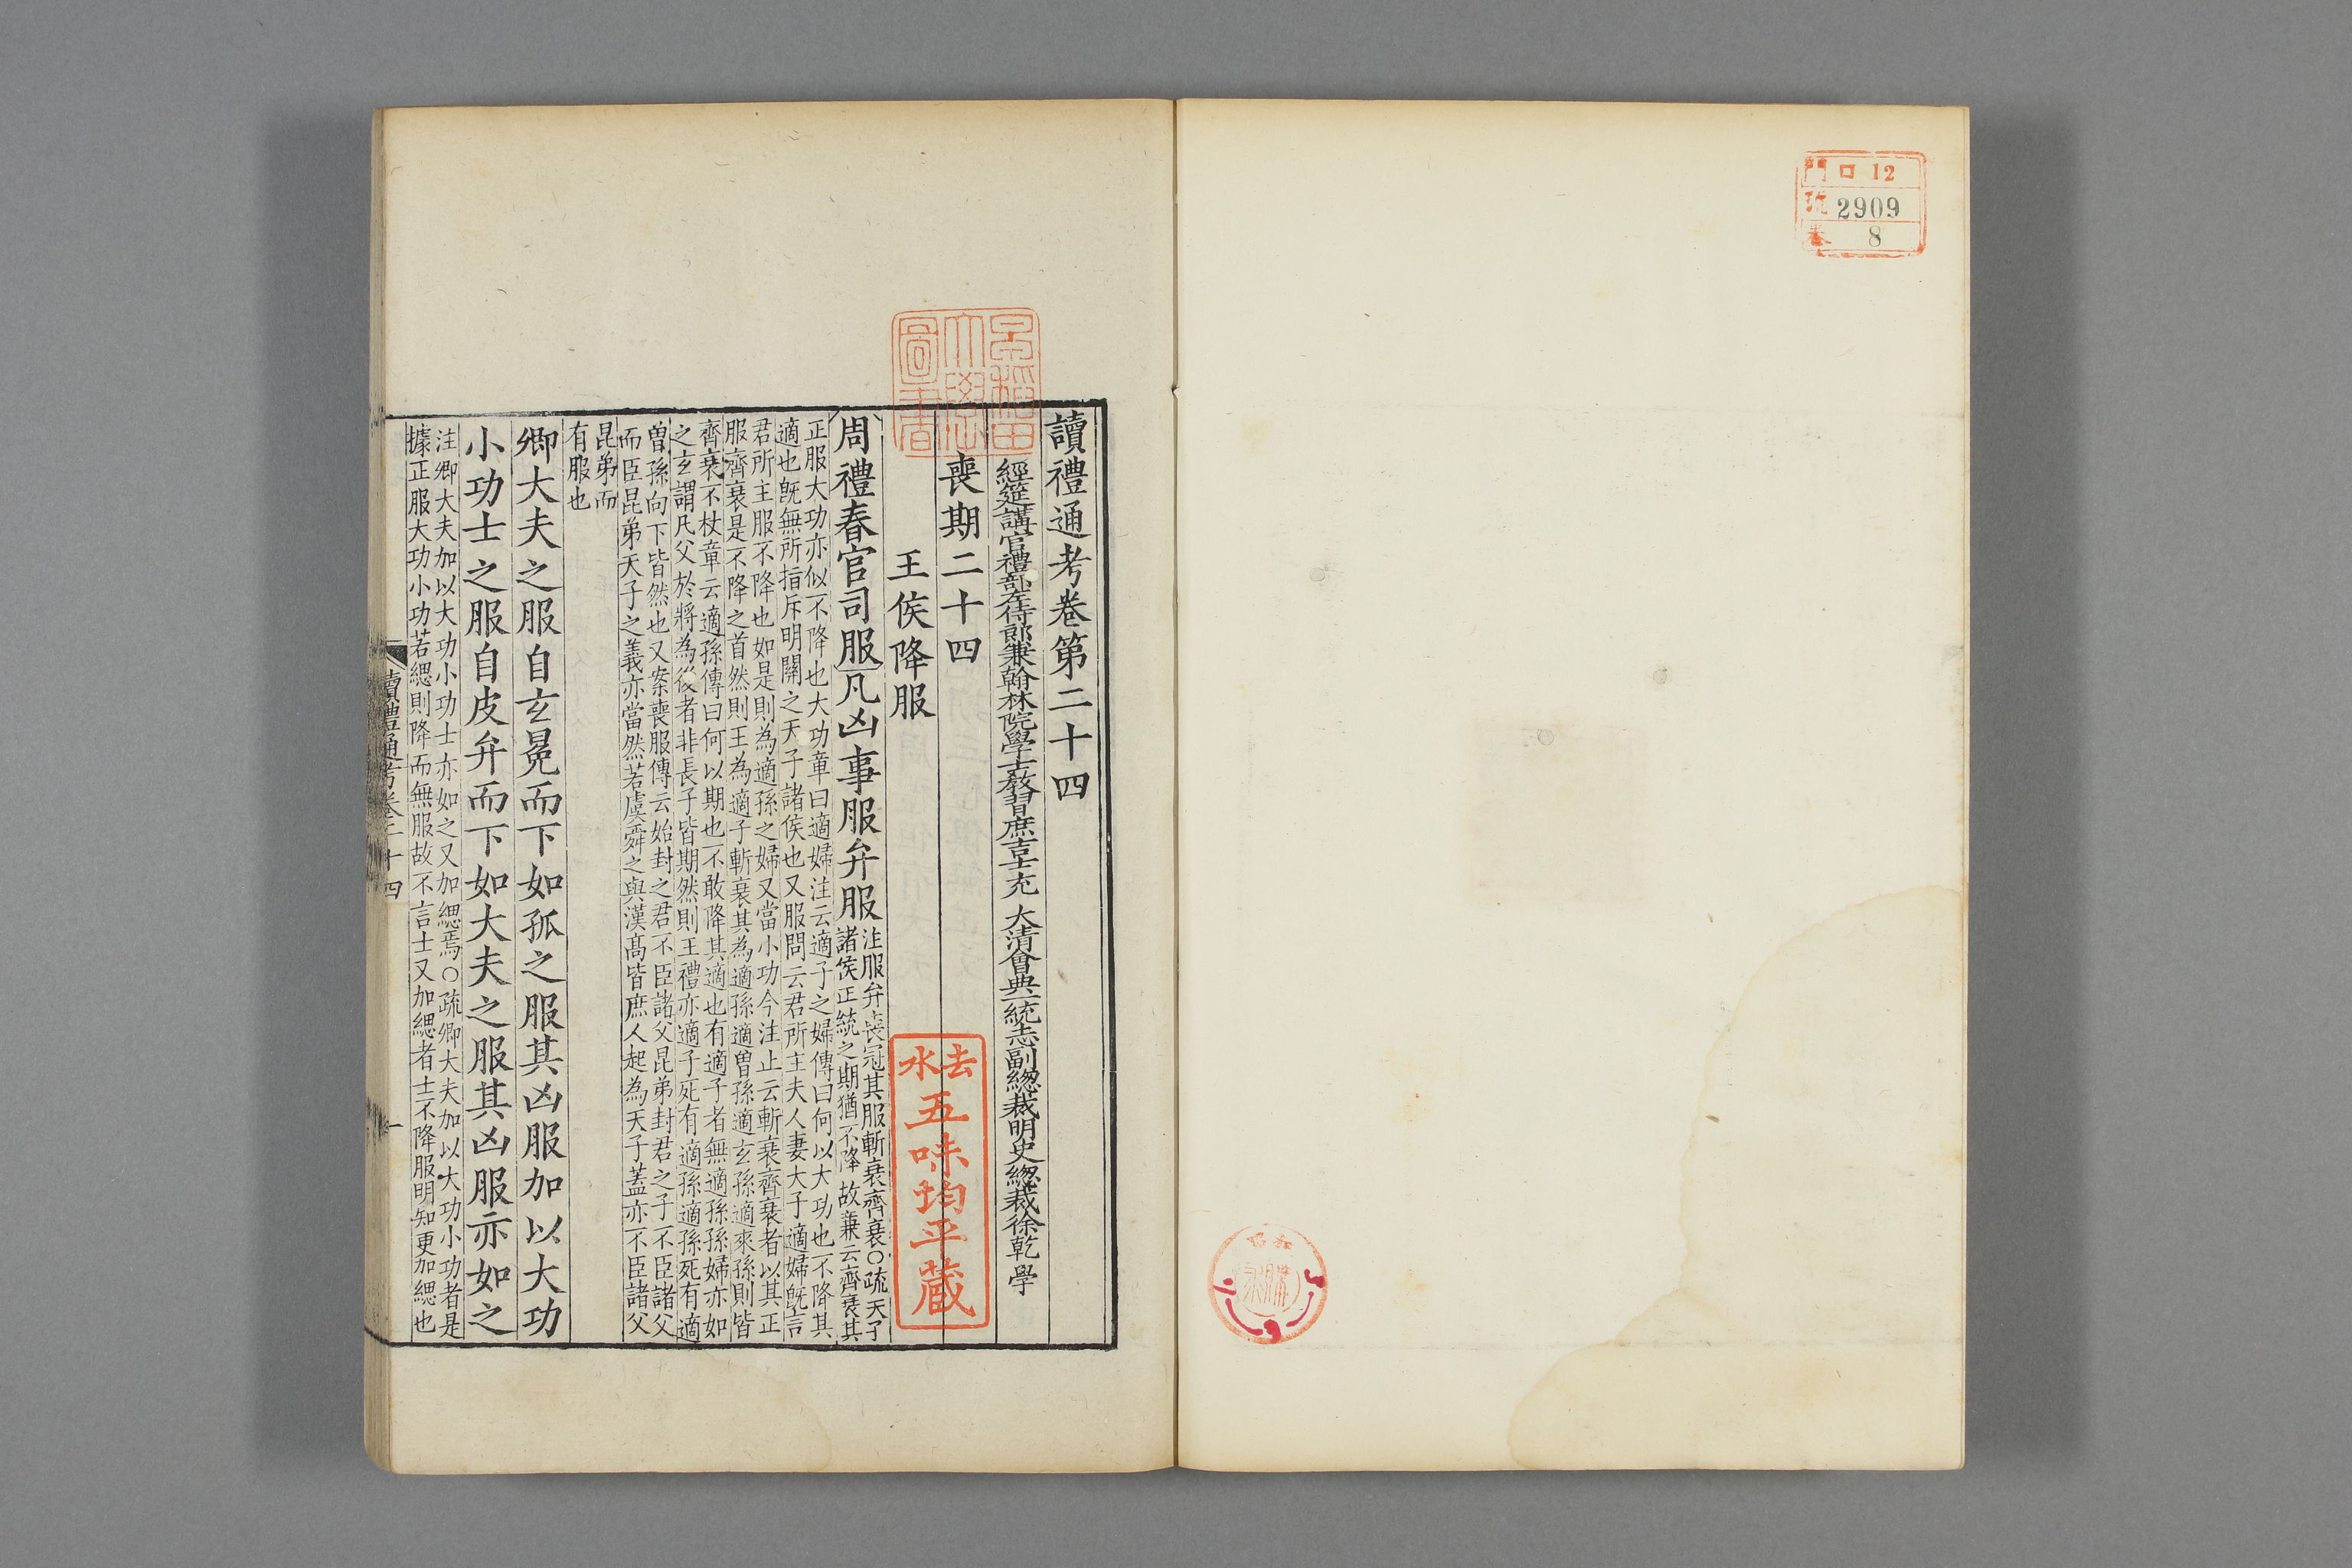 門 ロ 12
號 2909
卷 8
早稲田
大學
圖書
讀禮通考卷第二十四
經筵講官禮部左侍郎兼翰林院學士教習庶吉士充 大清會典一統志副緫裁明史緫裁徐乾學
喪期二十四
王侯降服
去水
五味均平蔵
周禮春官司服凡凶事服弁服
注服弁喪冠其服斬衰齊衰○疏天子
諸侯正統之期猶不降故兼云齊衰其
正服大功亦似不降也大功章曰適婦注云適子之婦傳曰何以大功也不降其
適也旣無所指斥明關之天子諸侯也又服問云君所主夫人妻大子適婦旣言
君所主服不降也如是則為適孫之婦又當小功今注止云斬衰齊衰者以其正
服齊衰是不降之首然則王為適子斬衰其為適孫適曾孫適玄孫適來孫則皆
齊衰不杖章云適孫傳曰何以期也不敢降其適也有適子者無適孫孫婦亦如
之玄謂凡父於將為後者非長子皆期然則王禮亦適子死有適孫適孫死有適
曾孫向下皆然也又案喪服傳云始封之君不臣諸父昆弟封君之子不臣諸父
而臣昆弟天子之義亦當然若虞舜之與漢髙皆庶人起為天子蓋亦不臣諸父
昆弟而
有服也
卿大夫之服自玄冕而下如孤之服其凶服加以大功
小功士之服自皮弁而下如大夫之服其凶服亦如之
注卿大夫加以大功小功士亦如之又加緦焉○疏卿大夫加以大功小功者是
據正服大功小功若緦則降而無服故不言士又加緦者士不降服明知更加緦也
讀禮通考卷二十四
一